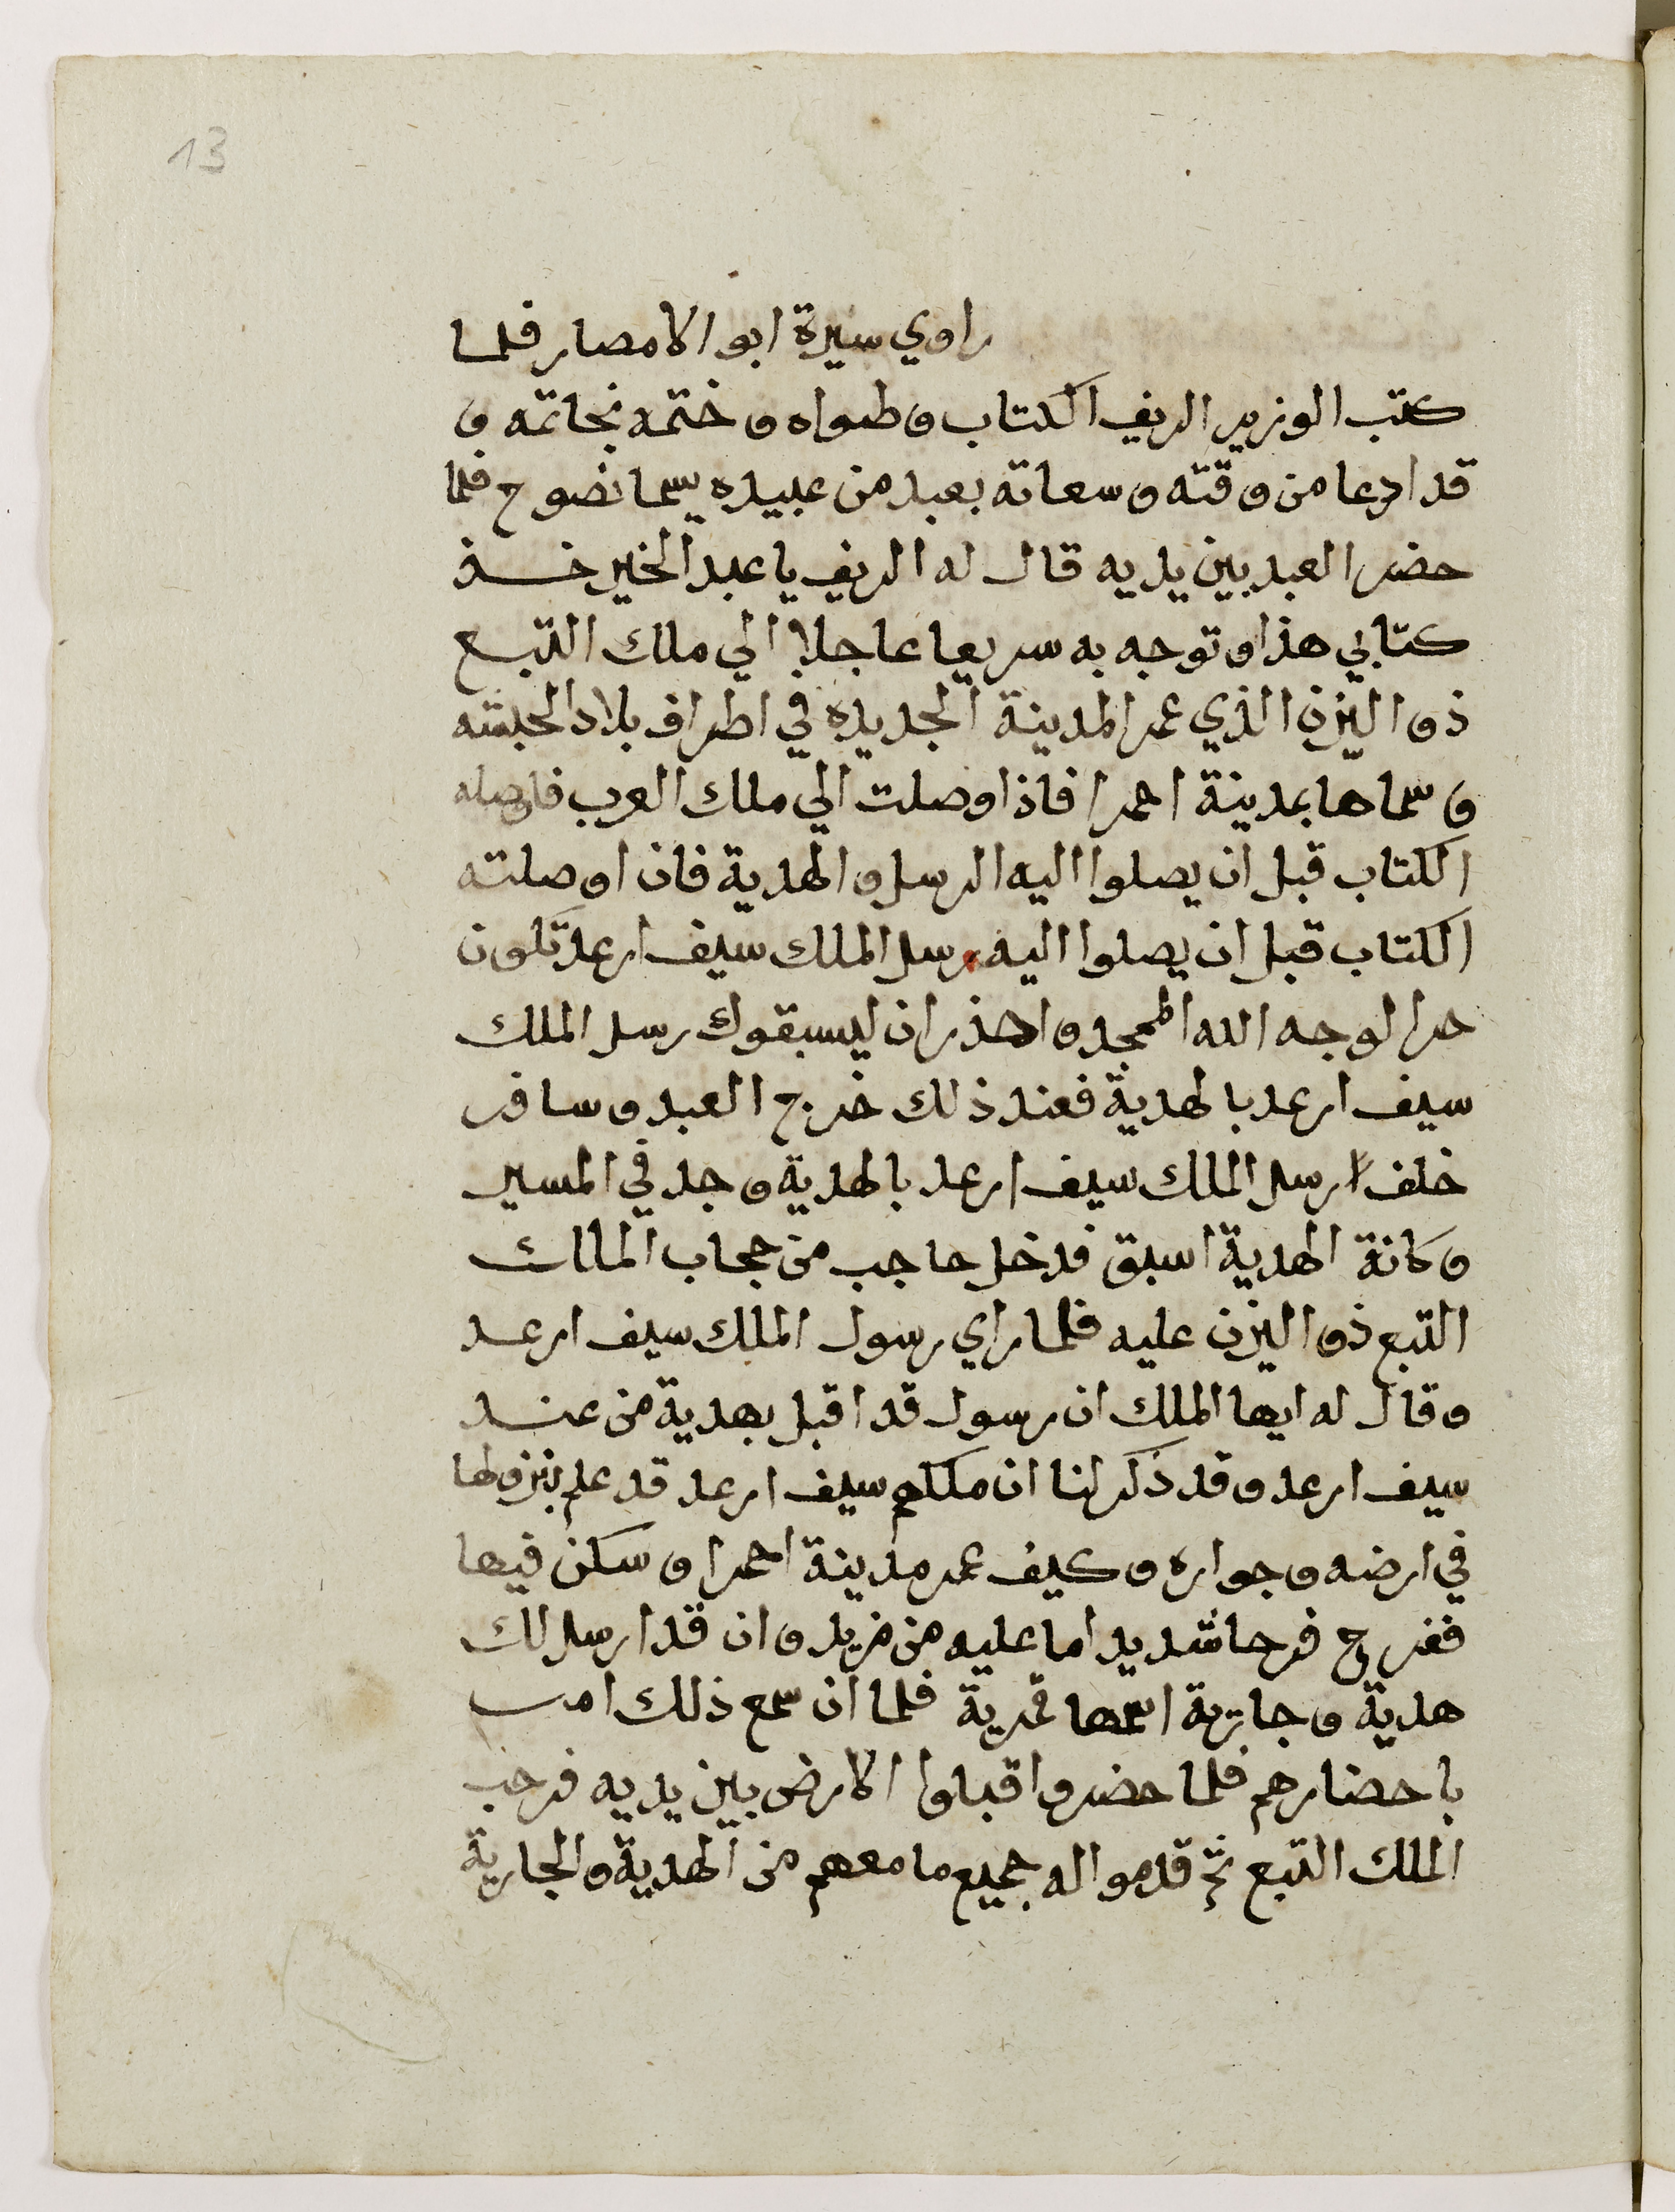 13
راوي سيرة ابو الامصار فلما
كتب الوزير الريف الكتاب وطواه وختمه بخاتمه و
قد ادعا من وقته وسعاته بعبد من عبيده يسما نصوح فلما
حضر العبد بين يديه قال له الريف يا عبد الخير خذ
كتابي هذا وتوجه به سريعا عاجلا الي ملك التبع
ذو اليزن الذي عمر المدينة الجديده في اطراف بلاد الحبشه
و سماها بمدينة احمرا فاذا وصلت الي ملك العرب فاوصله
الكتاب قبل ان يصلوا اليه الرسل والهدية فان اوصلته
الكتاب قبل ان يصلوا اليه رسل الملك سيف ارعد تكون
حرا لوجه الله الممجد واحذر ان ليسبقوك رسل الملك
سيف ارعد بالهدية فعند ذلك خرج العبد وسافر
خلف ارسل الملك سيف ارعد بالهدية وجد في المسير
وكانة الهدية اسبق فدخل حاجب من حجاب الملك
التبع ذو اليزن عليه فلما راي رسول الملك سيف ارعد
وقال له ايها الملك ان رسول قد اقبل بهدية من عند
سيف ارعد وقد ذكر لنا ان ملكهم سيف ارعد قد علم بنزولها
في ارضه وجواره وكيف عمر مدينة احمرا وسكن فيها
ففرح فرحا شديدا ما عليه من مزيد وان قد ارسل لك
هدية وجارية اسمها قمرية فلما ان سمع ذلك امر
باحضارهم فلما حضروا قبلوا الارض بين يديه فرحب
الملك التبع ثم قدموا له جميع ما معهم من الهدية والجارية